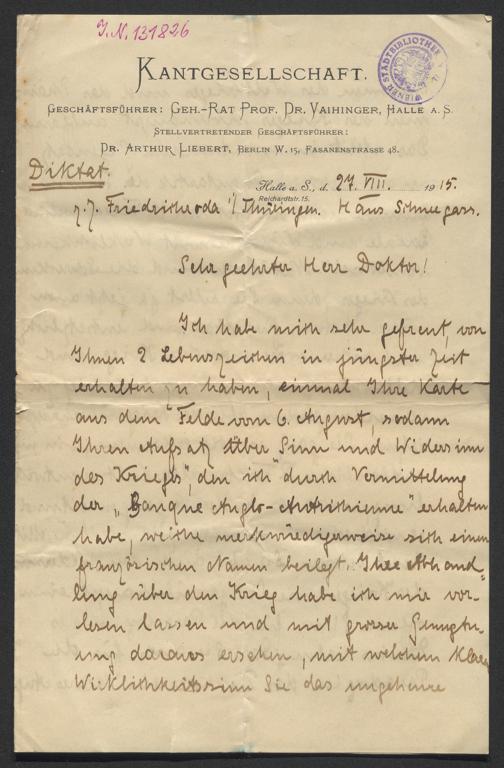 J.N. 131826
WIENER STADTBIBLIOTHEK
KANTGESELLSCHAFT.
GESCHÄFTSFÜHRER: GEH.-RAT PROF. DR. VAIHINGER, HALLE A. S.
STELLVERTRETENDER GESCHÄFTSFÜHRER:
DR. ARTHUR LIEBERT, BERLIN W. 15, FASANENSTRASSE 48.
Diktat.
Halle a. S., d. 27. VIII. 1915.
Reichardtstr. 15.
z. Z. Friedrichroda i/ Thüringen. Haus Schneegass.
Sehr geehrter Herr Doktor!
Ich habe mich sehr gefreut, von
Ihnen 2 Lebenszeichen in jüngster Zeit
erhalten zu haben, einmal Ihre Karte
aus dem Felde vom 6. August, sodann
Ihren Aufsatz über "Sinn und Widersinn
des Krieges", den ich durch Vermittlung
der „Banque Anglo-Autrichienne" erhalten
habe, welche merkwürdigerweise sich einen
französischen Namen beilegt. Ihre Abhand=
lung über den Krieg habe ich mir vor-
lesen lassen und mit grosser Genugtu-
ung daraus ersehen, mit welchem klaren
Wirklichkeitssinn Sie das ungeheure